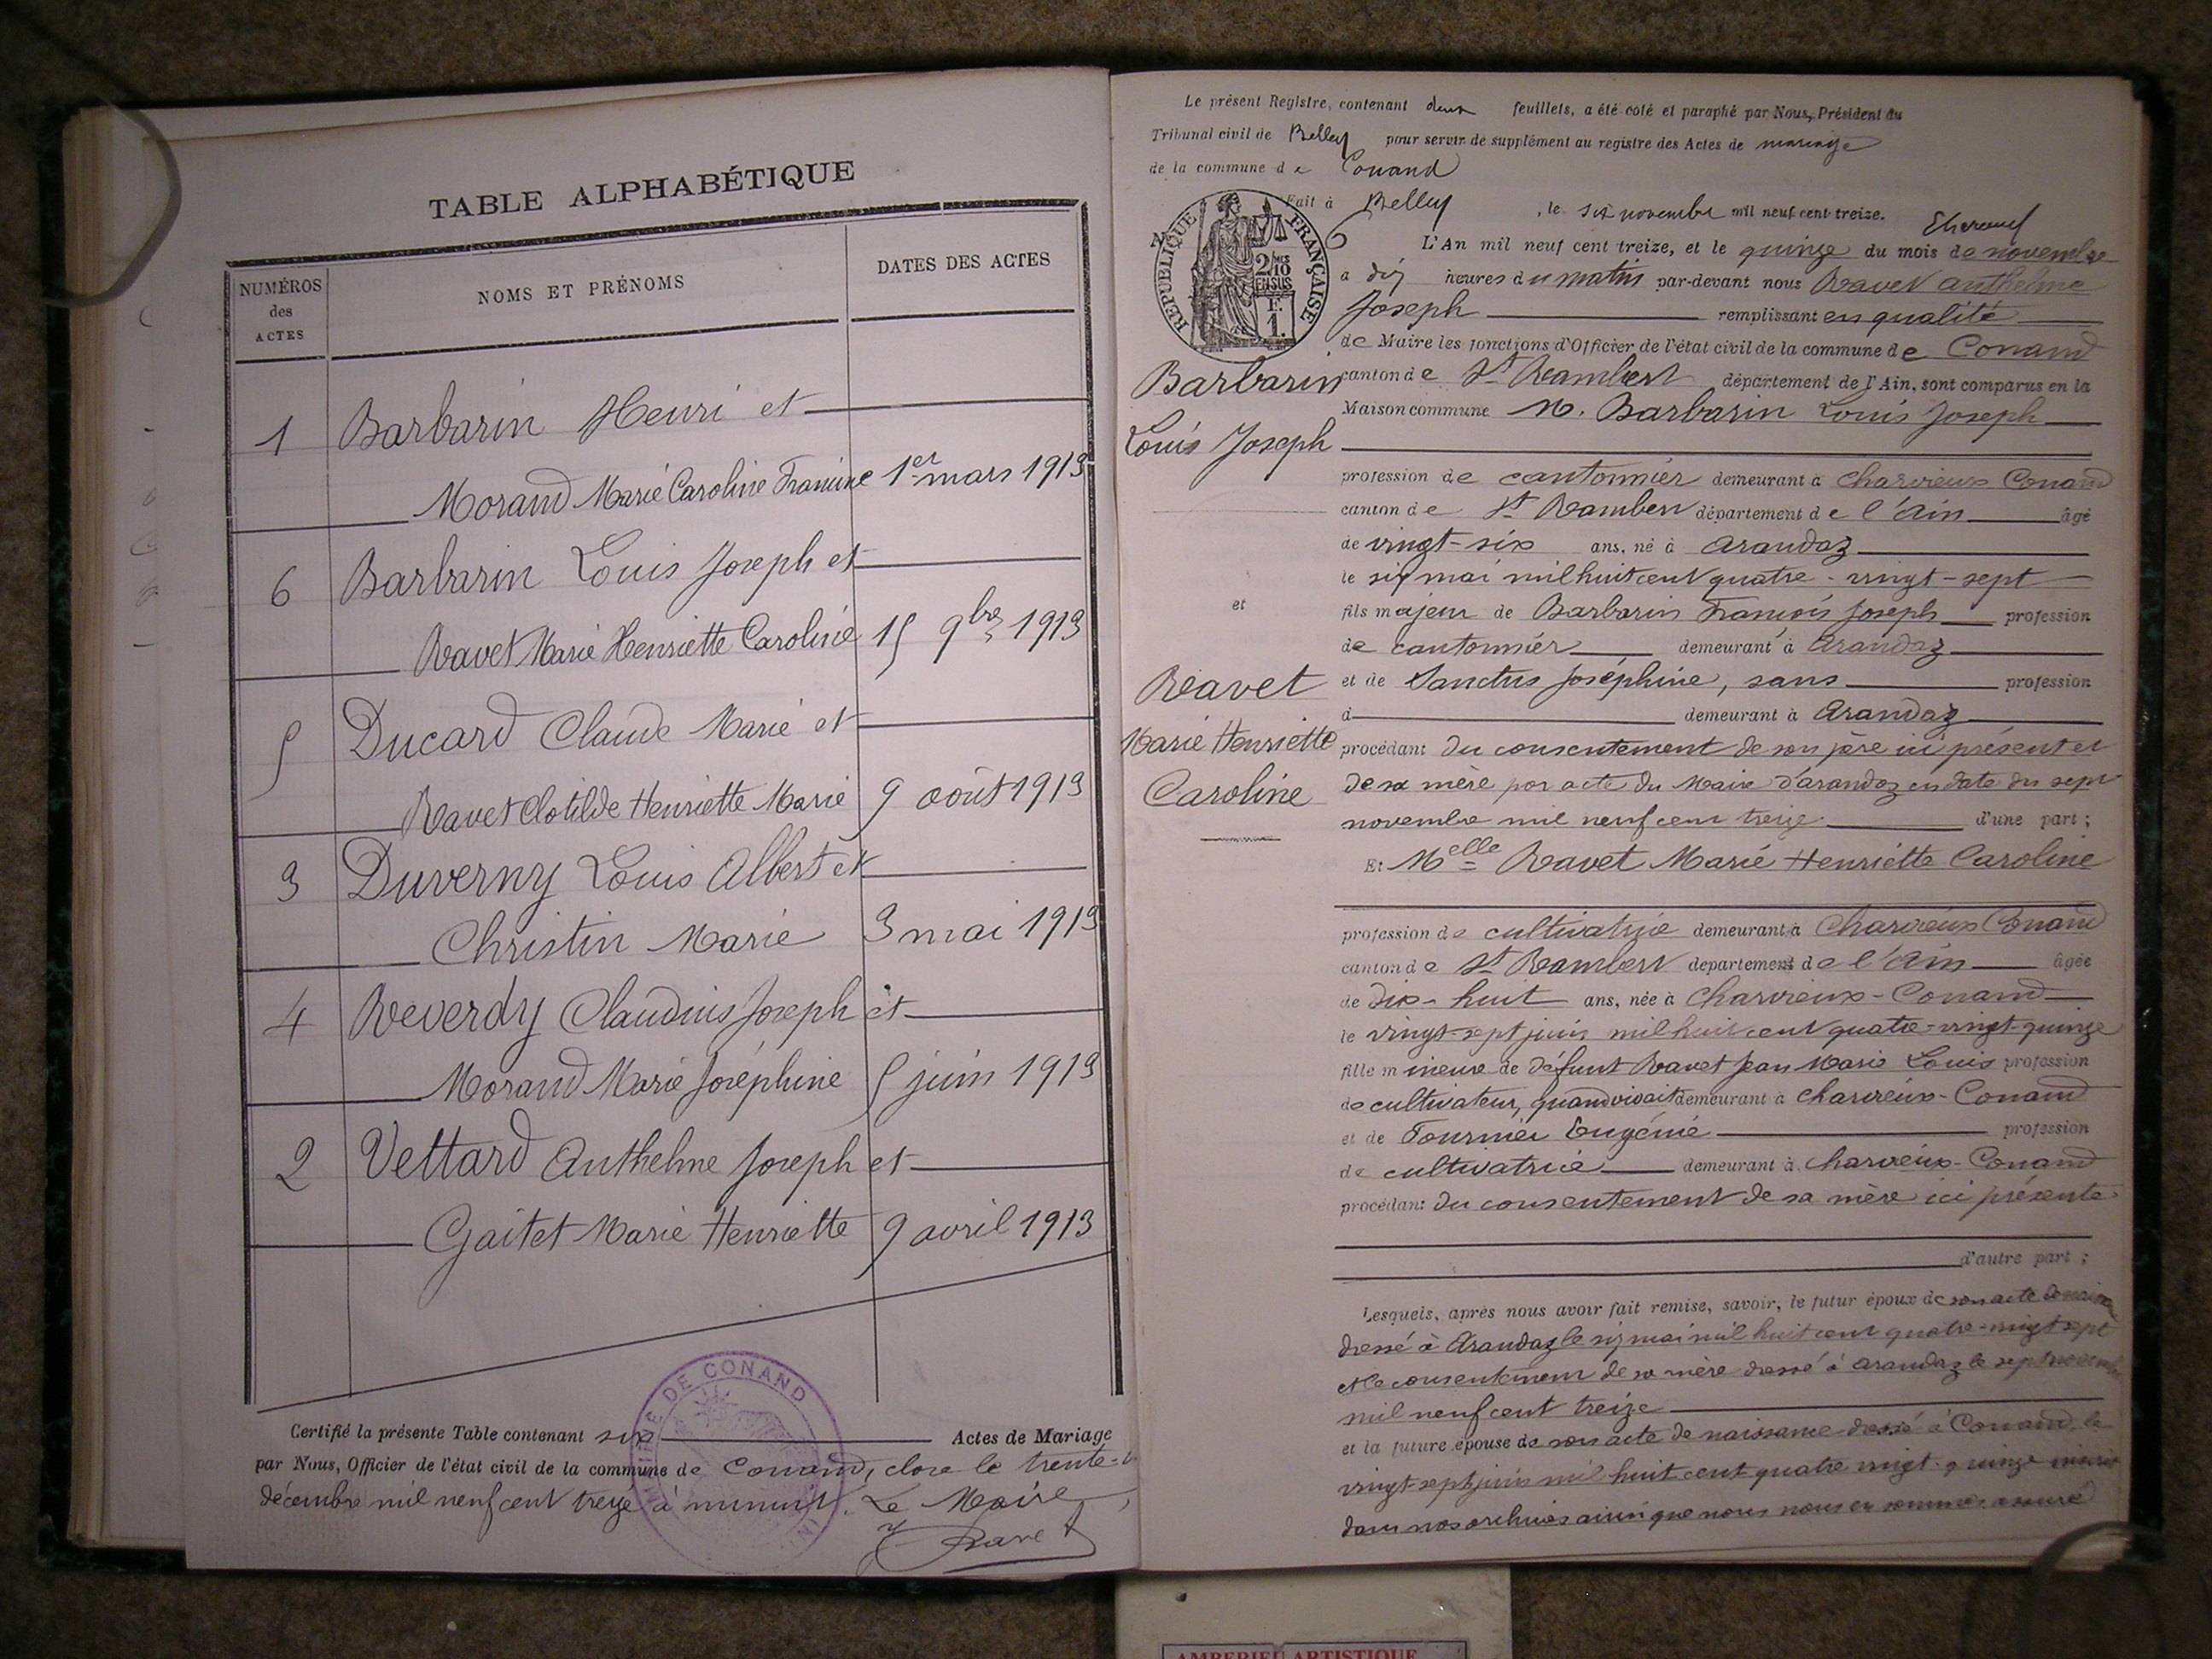 TABLE ALPHABÉTIQUE
NUMÉROS
des
ACTES
NOMS ET PRÉNOMS
DATES DES ACTES
1 Barbarin Henri et
Morand Marie Caroline Francine 1er mars 1913
6 Barbarin Louis Joseph et
Ravet Marie Henriette Caroline 15 9bre 1913
5 Ducard Claude Marie et
Ravet Clotilde Henriette Marie 9 août 1913
3 Duverny Louis Albert et
Christin Marie 3 mai 1913
4 Reverdy Claudius Joseph et
Morand Marie Joséphine 5 juin 1913
2 Vettard Anthelme Joseph et
Gaitet Marie Henriette 9 avril 1913
Certifié la présente Table contenant six Actes de Mariage
par Nous, Officier de l'état civil de la commune de Conand, close le trente-
décembre mil neuf cent treize à minuit. Le Maire
Ravet
DE CONAND
Le présent Registre, contenant deux feuillets, a été coté et paraphé par Nous, Président du
Tribunal civil de Belley pour servir de supplément au registre des Actes de mariage
de la commune de Conand
Fait à Belley, le six novembre mil neuf cent treize.
RÉPUBLIQUE FRANÇAISE
2/10
EN SUS
F.
1.
L'An mil neuf cent treize, et le quinze du mois de novembre
à dix heures du matin par-devant nous Ravet Anthelme
Joseph remplissant en qualité
de Maire les fonctions d'Officier de l'état civil de la commune de Conand
canton de St Rambert département de l'Ain, sont comparus en la
Maison commune M. Barbarin Louis Joseph
Barbarin
Louis Joseph
profession de cantonnier demeurant à Charvieux Conand
canton de St Rambert département de l'Ain âgé
de vingt-six ans, né à Arandaz
le six mai mil huit cent quatre-vingt-sept
et
fils majeur de Barbarin François Joseph profession
de cantonnier demeurant à Arandaz
Ravet
Marie Henriette
Caroline
et de Sanctus Joséphine, sans profession
à demeurant à Arandaz
procédant du consentement de son père ici présent et
de sa mère par acte du Maire d'Arandaz en date du sept
novembre mil neuf cent treize d'une part ;
Et Melle Ravet Marie Henriette Caroline
profession de cultivatrice demeurant à Charvieux Conand
canton de St Rambert département de l'Ain âgée
de dix-huit ans, née à Charvieux-Conand
le vingt-sept juin mil huit cent quatre-vingt-quinze
fille mineure de défunt Ravet Jean Marie Louis profession
de cultivateur, quand vivait demeurant à Charvieux-Conand
et de Fournier Eugénie profession
de cultivatrice demeurant à Charvieux-Conand
procédant du consentement de sa mère ici présente
d'autre part ;
Lesquels, après nous avoir fait remise, savoir, le futur époux de son acte de naissance
dressé à Arandaz le six mai mil huit cent quatre-vingt sept
et le consentement de sa mère dressé à Arandaz le sept novembre
mil neuf cent treize
et la future épouse de son acte de naissance dressé à Conand le
vingt sept juin mil huit cent quatre vingt-quinze inscrit
dans nos archives ainsi que nous nous en sommes assuré
AMBERIEU ARTISTIQUE